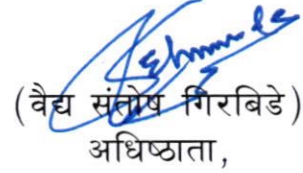 (वैद्य संतोष गिरबिडे)
अधिष्ठाता,